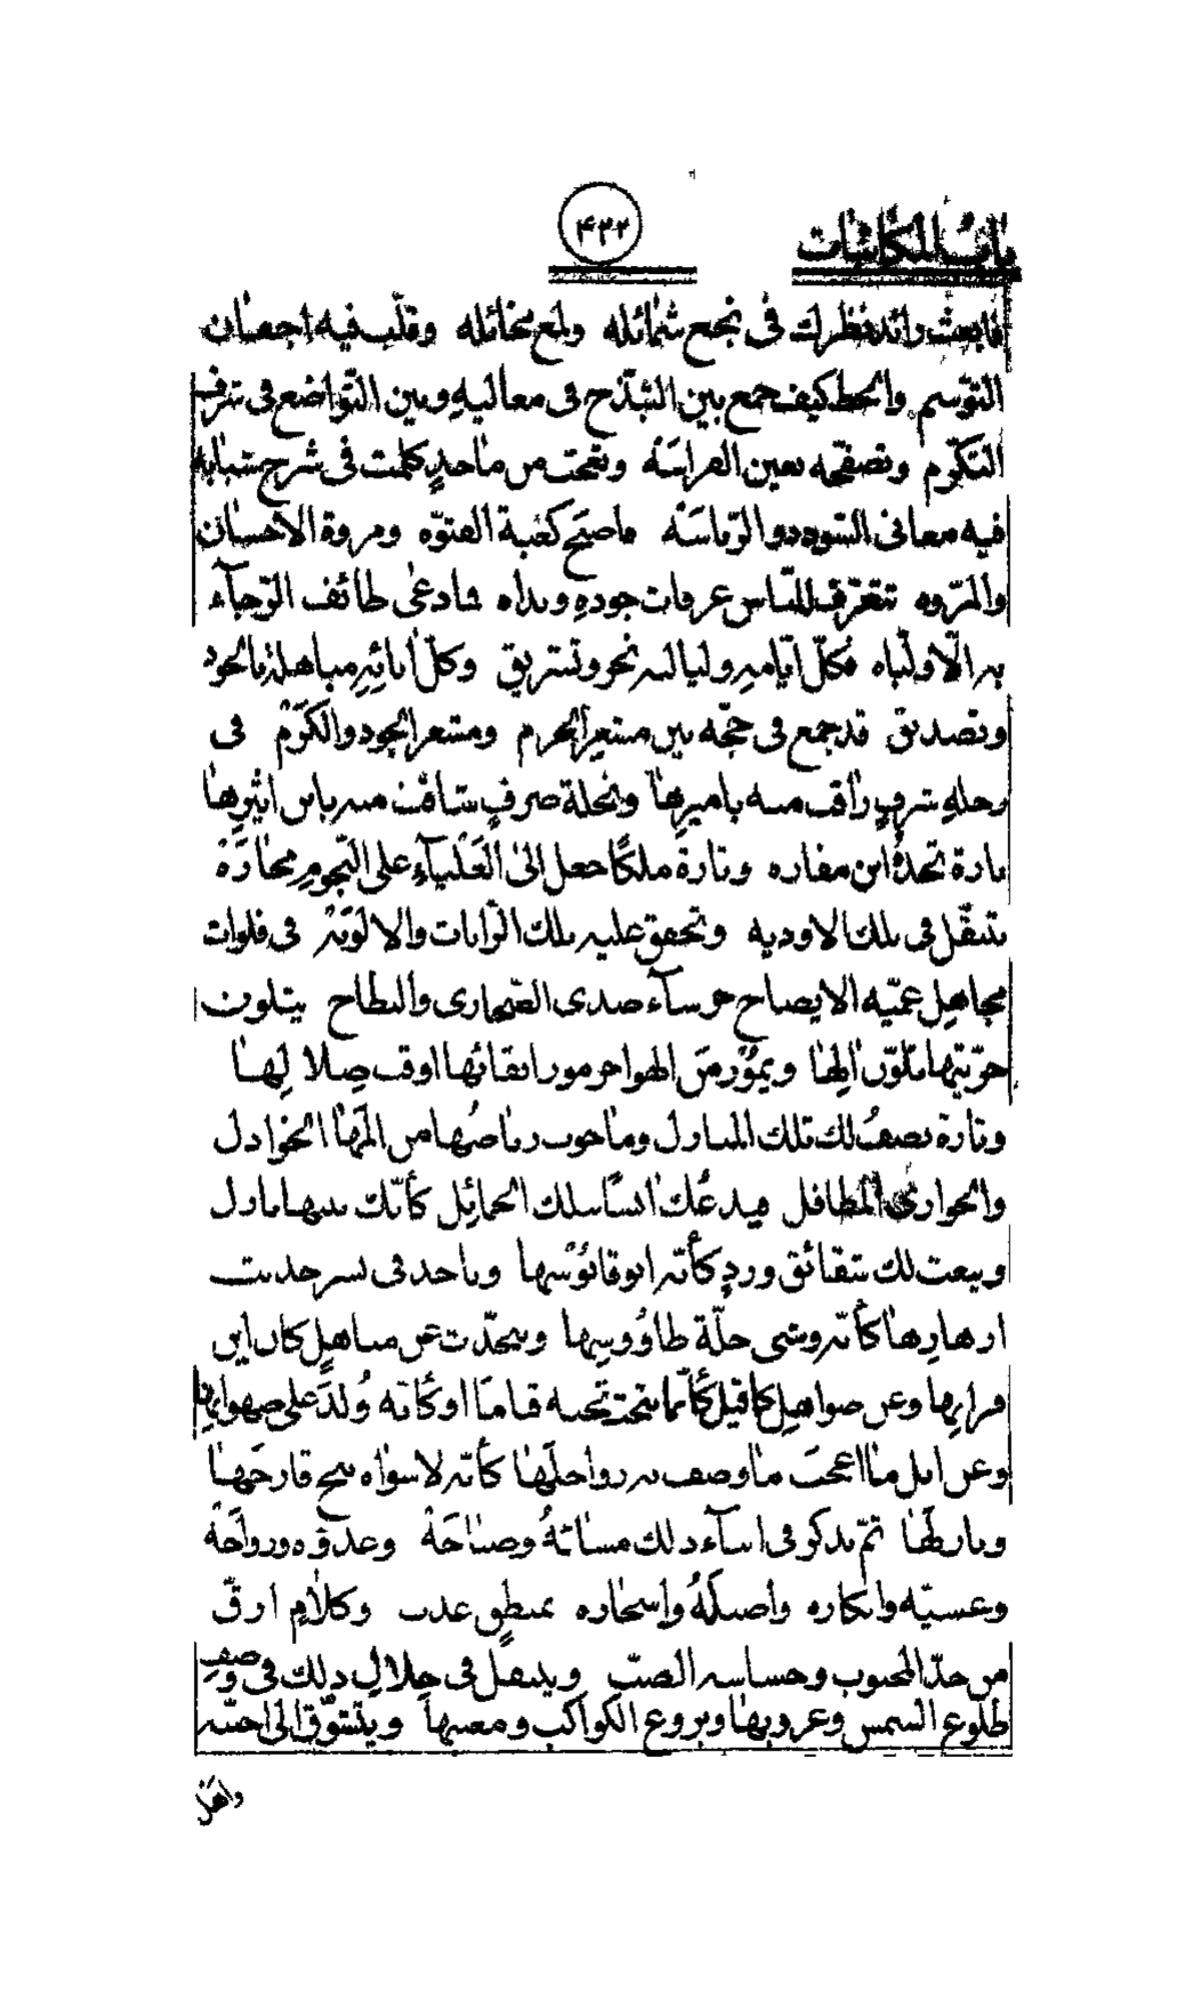 باب المكاتبات
۴۳۲
فابعث رائد نظرك فى نجع شمائله ولمع مخائله وقلّب فيه اجفان
التوسّم والحظ كيف جمع بين التبذّخ فى معاليه وبين التّواضع فى شرف
التكرّم وتصفّحه بعين الفراسه وتعجّب من ماجدٍ كملت فى شرخ شبابه
فيه معانى السّودد والرّياسَه ما صبح كعبة الفتوّه ومروة الاحسان
والمرّوه تتعرّف للنّاس عرفات جوده ونداه فادعى طائف الرّجآء
به الّا ولبّاه فكلّ ايّامه ولياليه نحر وتشريق وكلّ مباهلة بالجود
وتصديق قد جمع فى حجّه بين مشعر الحرم ومشعر الجود والكَرَم فى
رحلةِ شرفٍ راقت منه باميرها ونحلة
تارة تحدهُ ابن مفازه وتارة ملكًا جعل الى العَلْيآءِ على النّجومِ مجازَهْ
يتنقّل فى تلك الاوديه وتخفق عليه تلك الرّايات والالوَيَهْ فى فلوات
مجاهل عميّه الا يصاح خرسآء صدى الصّحارى والبطاح يتلون
تلوّن الِها ويمُوْر من الهواجر
وتارة يصفُ لك تلك المنازل وما حوت رياضُها من المَها الخوادل
والجوارى المطافل فيدعُك تلك الخمائل كأنّك بينها نازل
ويبعث لك شقائق وردٍ كأنّه ابو قابُوْسِها وياخد فى نسر حديث
ازهارِها كأنّه وشى حلّة طاوُوسِها ويحدّث عن مناهل كان ابن
وعن صواهلٍ كما قيل كأنّما نتجت تحته قيامًا او كأنّه وُلدَ على صهواتِها
وعن ابل ما اعجبَ ما وصف به رواحلَها كأنّه لا سواه
ثمّ يذكر فى اثنآء ذلك مسائهُ وصباحَهْ وغدوّه ورواحَهْ
وعشيّه وابكاره واصيلَهُ واسحاره بمنطقٍ عذب وكلام ارقّ
من خدّ المحبوب وحساسه الصبّ وينتقل فى خِلالِ ذلك فى وصفِ
طلوع الشمس وغروبها وبزوغ الكواكب ومغيبها ويتشوّق الى احبّته
واهل